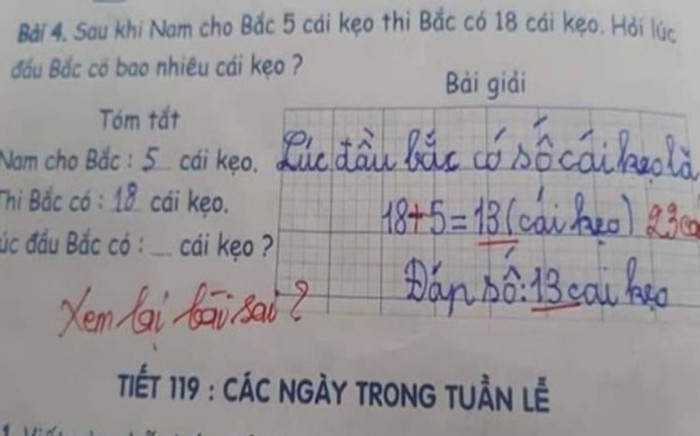 Bài 4. Sau khi Nam cho Bắc 5 cái kẹo thì Bắc có 18 cái kẹo. Hỏi lúc
đầu Bắc có bao nhiêu cái kẹo ?
Bài giải
Tóm tắt
Nam cho Bắc : 5 cái kẹo.
Thì Bắc có : 18 cái kẹo.
úc đầu Bắc có : ... cái kẹo ?
Lúc đầu bắc có số cái kẹo là
18+5=13 (cái kẹo) 23 cá
Đáp số: 13 cái kẹo
Xem lại bài sai ?
TIẾT 119 : CÁC NGÀY TRONG TUẦN LỄ